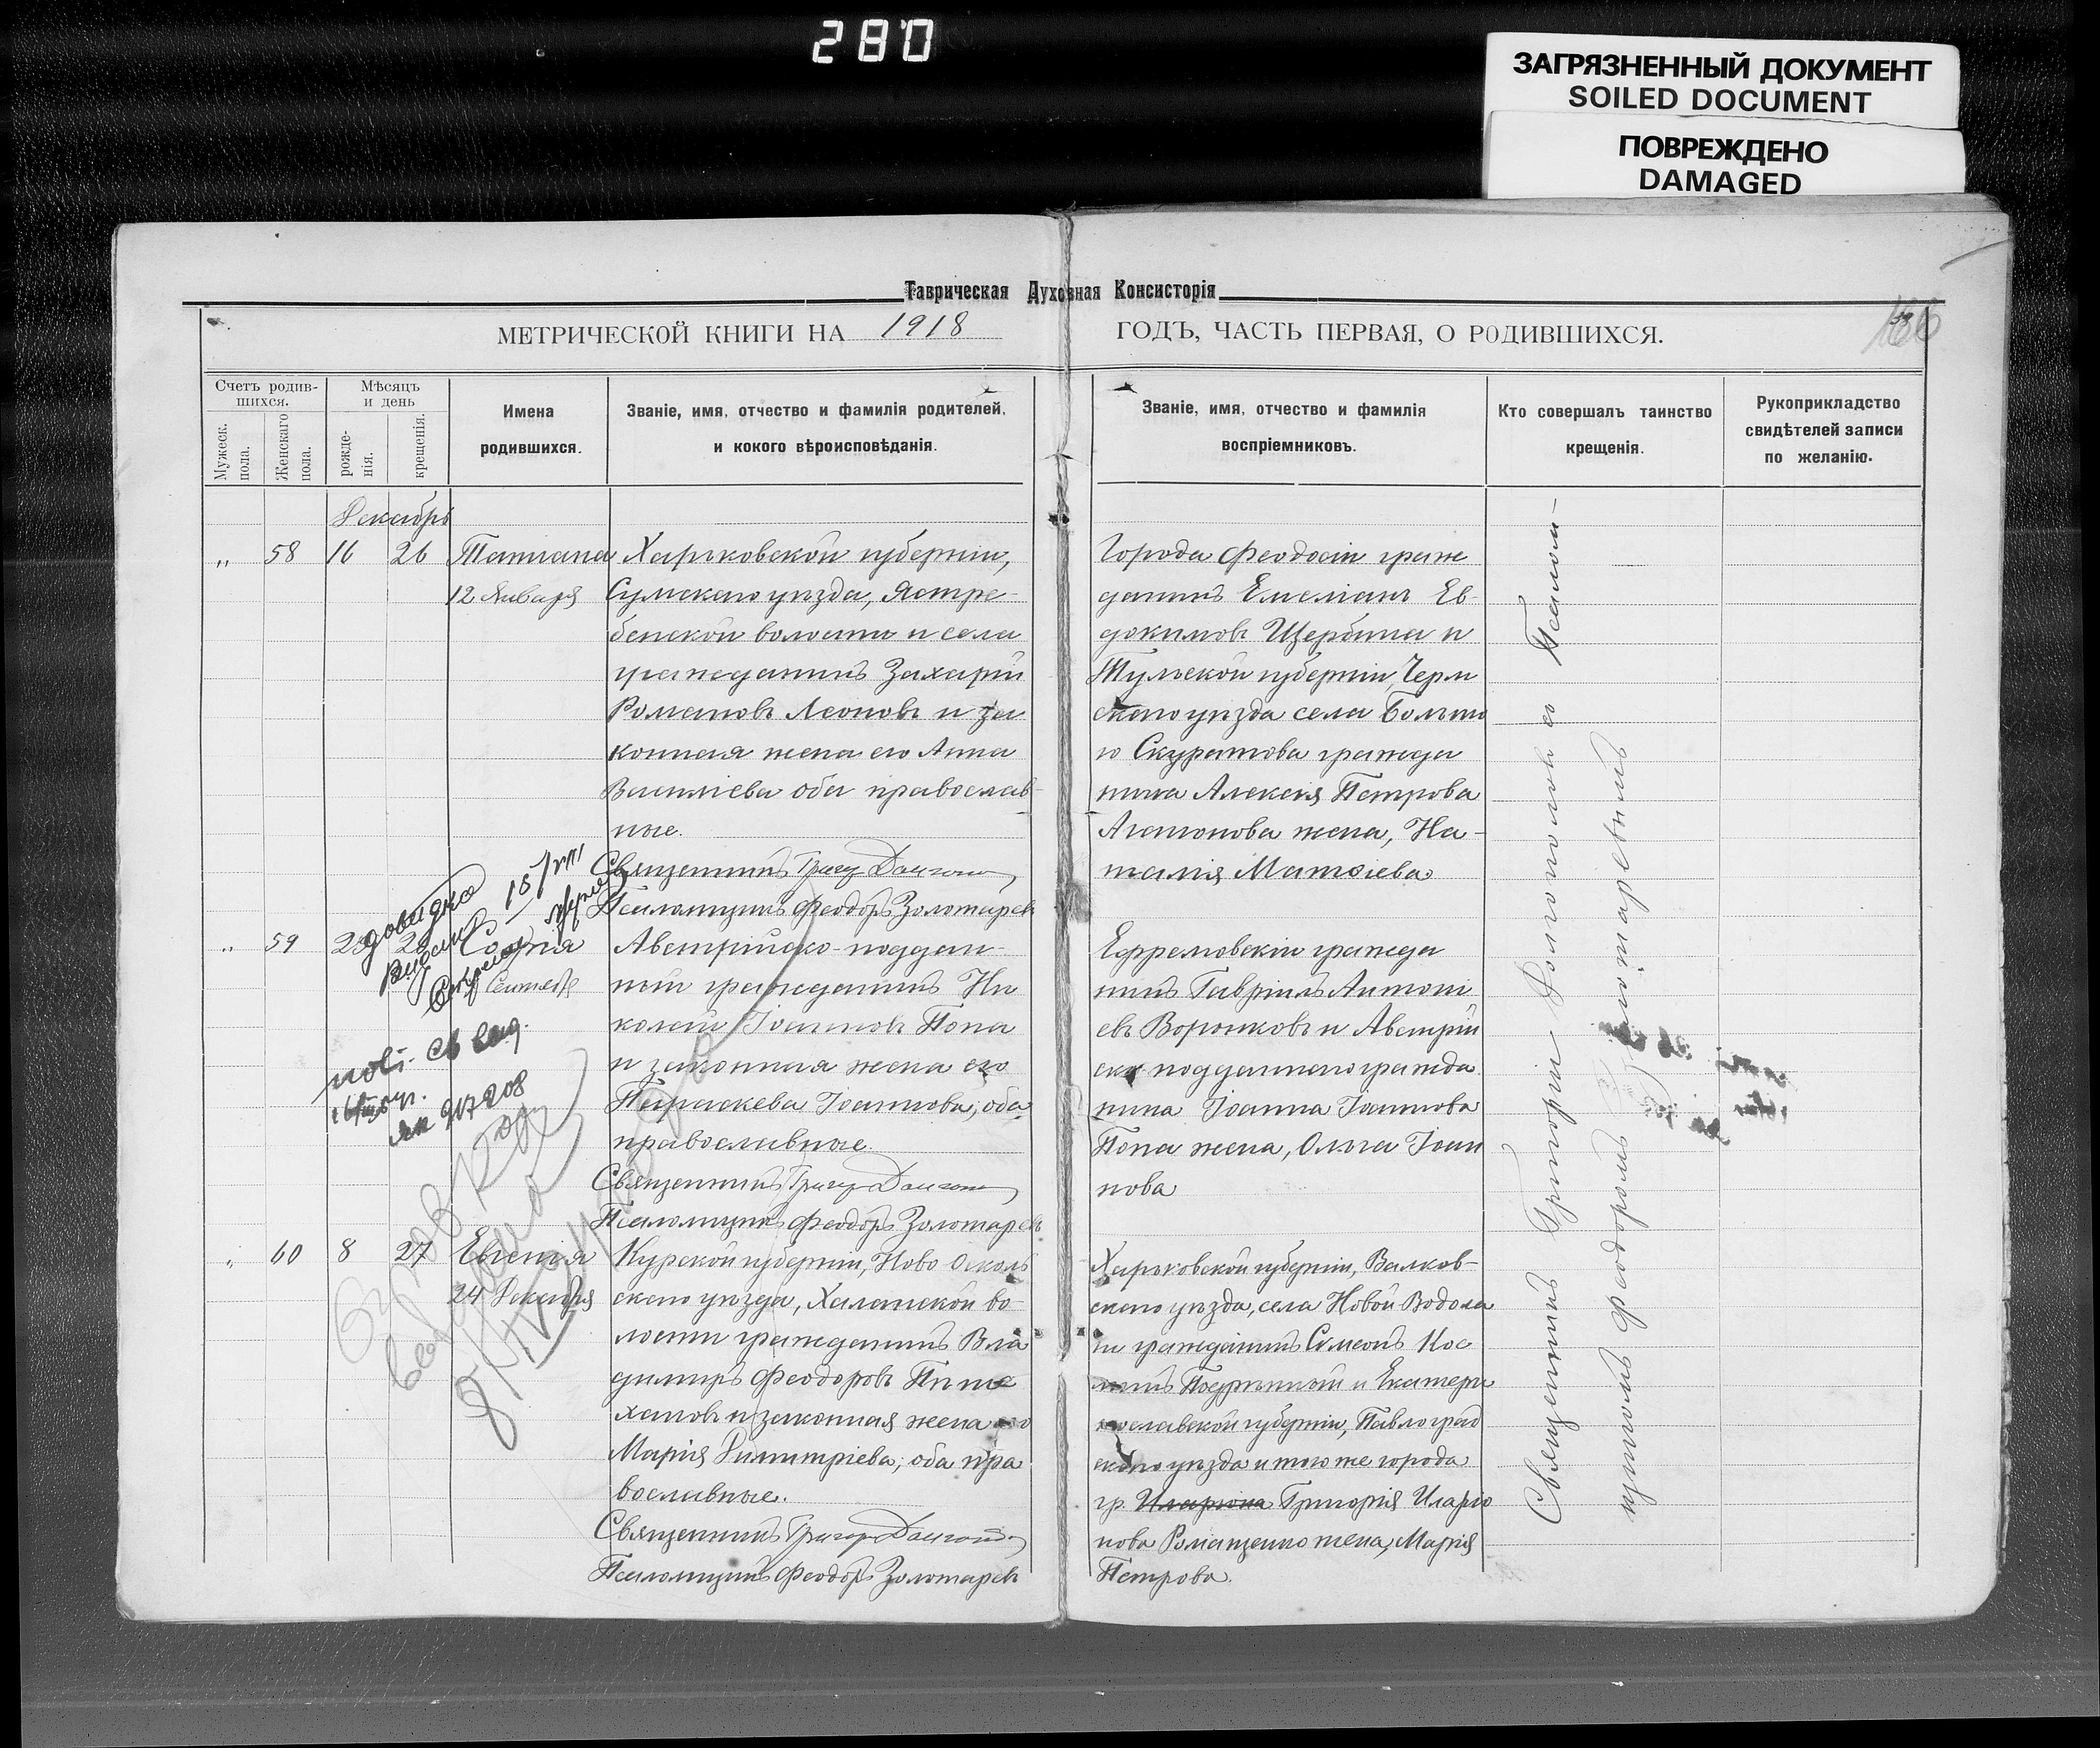 280
ЗАГРЯЗНЕННЫЙ ДОКУМЕНТ
SOILED DOCUMENT
ПОВРЕЖДЕНО
DAMAGED
Таврическая Духовная Консисторія
МЕТРИЧЕСКОЙ КНИГИ НА 1918 ГОДЪ, ЧАСТЬ ПЕРВАЯ, О РОДИВШИХСЯ.
Счетъ родив-
шихся.
Мужеск.
пола.
Женскаго
пола.
Мѣсяцъ
и день
рожде-
нія.
крещенія.
Имена
родившихся.
Званіе, имя, отчество и фамилія родителей,
и кокого вѣроисповѣданія.
Званіе, имя, отчество и фамилія
воспріемниковъ.
Кто совершалъ таинство
крещенія.
Рукоприкладство
свидѣтелей записи
по желанію.
Декабрь
„ 58 16 26 Татиана
12 Января
Харьковской губерніи,
Сумскаго уѣзда, Ястре-
бенской волости и села
гражданинъ Захарій
Романовъ Леоновъ и за
конная жена его Анна
Васильева оба православ-
ные.
Священникъ Григор
Псаломщикъ Феодоръ Золотаревъ
Города Феодосіи граж
данинъ Емеліанъ Ев-
докимовъ Щербина и
Тульской губерніи, Черн
скаго уѣзда села Больш
о Скуратова гражда
нина Алексѣя Петрова
Агапонова жена, На-
талія Матѳіева
„ 59 23 София
Сентября
Австрійско-поддан-
ный гражданинъ Ни
колай Іоанновъ Попа
и законная жена его
Параскева Іоаннова, оба
православные.
Священникъ Григор
Псаломщикъ Феодоръ Золотаревъ
довидка
видана
18/VIII
пов. св вид.
як 217208
Ефремовскій гражда
нинъ Гавріилъ Антоні
евъ Воронковъ и Австрій
ско подданнаго гражда
нина Іоанна Іоаннова
Попа жена, Ольга Іоан
нова
„ 60 8 27 Евгенія
24 Декабря
Курской губерніи, Ново Осколь
скаго уѣзда, Халанской во-
лости гражданинъ Вла
димиръ Феодоровъ
и законная жена его
Марія Димитріева, оба пра
вославные.
Священникъ Григор
Псаломщикъ Феодоръ Золотаревъ
Харьковской губерніи, Валков-
скаго уѣзда, села Новой Водола
ги гражданинъ Симеонъ Кос
и Екатери
нославской губерніи, Павлоград
скаго уѣзда и того же города
гр. Иларіона Григорія Иларіо
нова Романенко жена, Марія
Петрова.
Священникъ Григорій съ Псалом-
щикомъ Феодоромъ Золотаревымъ